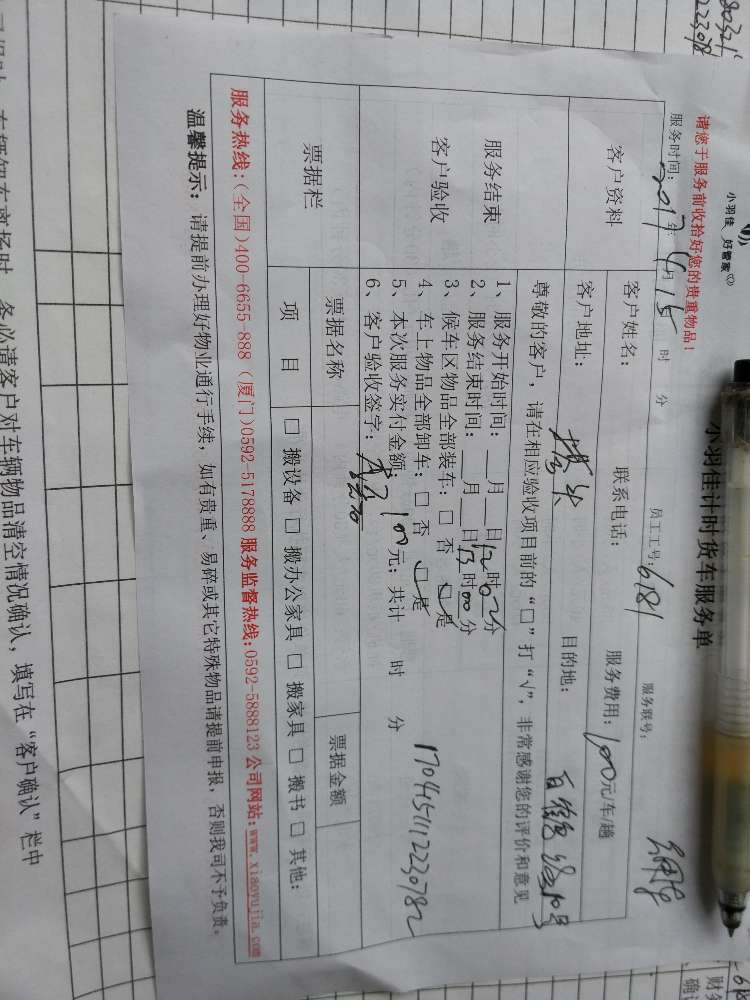 小羽佳 好管家
小羽佳计时货车服务单
请您于服务前收拾好您的贵重物品！
服务时间：2017年4月15 时 分 员工工号：6181 服务联号：
客户资料
客户姓名： 联系电话： 服务费用：100元/车/趟
客户地址： 目的地：
服务结束
客户验收
尊敬的客户，请在相应验收项目前的“□”打“√”，非常感谢您的评价和意见
1、服务开始时间：__月__日12时02分
2、服务结束时间：__月__日13时00分
3、候车区物品全部装车：□ 否 □ 是
4、车上物品全部卸车：□ 否 □ 是
5、本次服务实付金额：100元；共计 时 分
6、客户验收签字：
170415111223078２
票据栏
票据名称 票据金额
项 目 □ 搬设备 □ 搬办公家具 □ 搬家具 □ 搬书 □ 其他：
服务热线：(全国)400-6655-888 (厦门)0592-5178888 服务监督热线:0592-5888123 公司网站:www.xiaoyujia.com
温馨提示： 请提前办理好物业通行手续，如有贵重、易碎或其它特殊物品请提前申报，否则我司不予负责。
务必请客户对车辆物品清空情况确认，填写在“客户确认”栏中